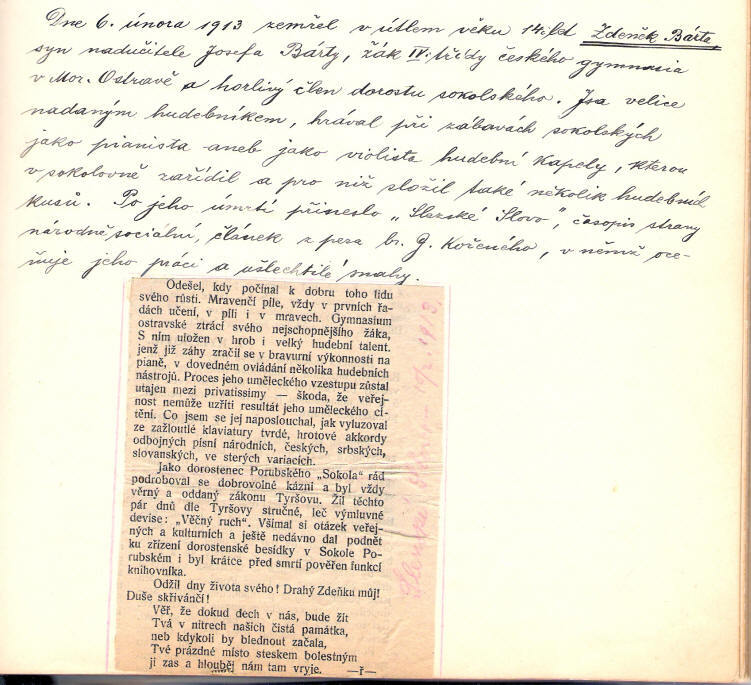 Dne 6. února 1913 zemřel v útlém věku 14 let Zdeněk Bárta,
syn nadučitele Josefa Bárty, žák IV. třídy českého gymnasia
v Mor. Ostravě a horlivý člen dorostu sokolského. Jsa velice
nadaným hudebníkem, hrával při zábavách sokolských
jako pianista aneb jako violista hudební kapely, kterou
v sokolovně zařídil a pro niž složil také několik hudebních
kusů. Po jeho úmrtí přineslo „Slezské Slovo", časopis strany
národně sociální, článek z pera br. G. Kořeného, v němž oce-
ňuje jeho práci a ušlechtilé snahy.
Odešel, kdy počínal k dobru toho lidu
svého růsti. Mravenčí píle, vždy v prvních řa-
dách učení, v píli i v mravech. Gymnasium
ostravské ztrácí svého nejschopnějšího žáka,
S ním uložen v hrob i velký hudební talent.
jenž již záhy zračil se v bravurní výkonnosti na
pianě, v dovedném ovládání několika hudebních
nástrojů. Proces jeho uměleckého vzestupu zůstal
utajen mezi privatissimy — škoda, že veřej-
nost nemůže uzříti resultát jeho uměleckého cí-
tění. Co jsem se jej naposlouchal, jak vyluzoval
ze zažloutlé klaviatury tvrdé, hrotové akkordy
odbojných písní národních, českých, srbských,
slovanských, ve sterých variacích.
Jako dorostenec Porubského „Sokola" rád
podroboval se dobrovolné kázni a byl vždy
věrný a oddaný zákonu Tyršovu. Žil těchto
pár dnů dle Tyršovy stručné, leč výmluvné
devise: „Věčný ruch". Všímal si otázek veřej-
ných a kulturních a ještě nedávno dal podnět
ku zřízení dorostenské besídky v Sokole Po-
rubském i byl krátce před smrtí pověřen funkcí
knihovníka.
Odžil dny života svého! Drahý Zdeňku můj!
Duše skřivánčí!
Věř, že dokud dech v nás, bude žít
Tvá v nitrech našich čistá památka,
neb kdykoli by blednout začala,
Tvé prázdné místo steskem bolestným
ji zas a hlouběj nám tam vryje. —ř—
1913.